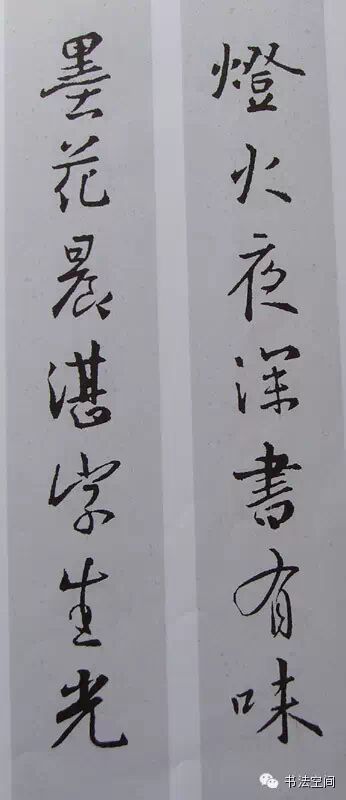 燈火夜深書有味
墨花晨湛字生光
书法空间